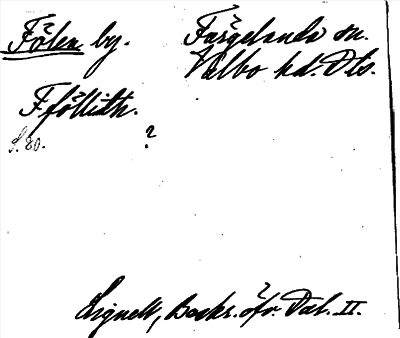 Fölen by. Färgelanda sn.
Valbo hd. Dls.
F. föllith.
S. 80. ?
Lignell, Beskr. öfv. Dal. II.